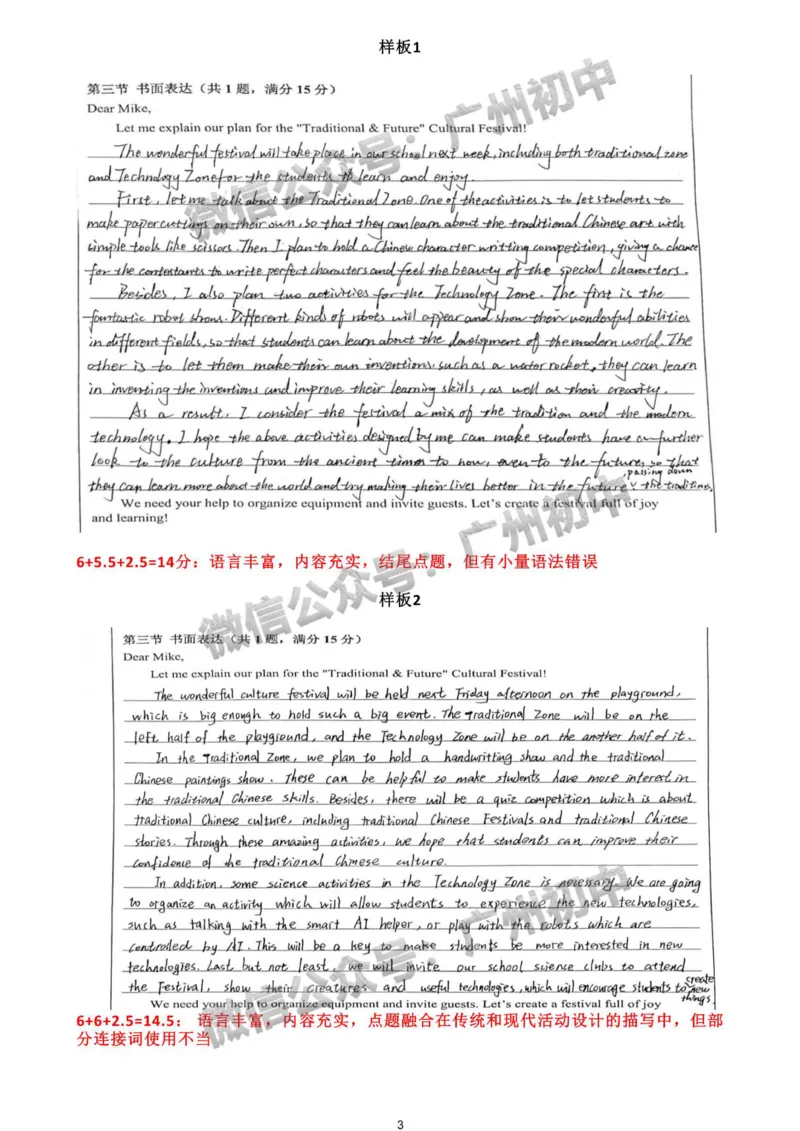 样板1
第三节 书面表达（共 1 题，满分 15 分）
Dear Mike,
Let me explain our plan for the "Traditional & Future" Cultural Festival!
The wonderful festival will take place in our school next week, including both traditional zone
and Technology Zone for the students to learn and enjoy.
First, let me talk about the Traditional Zone. One of the activities is to let students to
make paper cuttings on their own, so that they can learn about the traditional Chinese art with
simple tools like scissors. Then I plan to hold a Chinese character writting competition, giving a chance
for the contestants to write perfect characters and feel the beauty of the special characters.
Besides, I also plan two activities for the Technology Zone. The first is the
fauntastic robot shows. Different kinds of robots will appear and show their wonderful abilities
in different fields, so that students can learn about the development of the modern world. The
other is to let them make their own inventions, such as a water rocket, they can learn
in inventing the inventions and improve their learning skills, as well as their creativity.
As a result, I consider the festival a mix of the tradition and the modern
technology. I hope the above activities designed by me can make students have a further
look to the culture from the ancient times to now, even to the future, so that
they can learn more about the world and try making their lives better in the future, passing down the traditions.
We need your help to organize equipment and invite guests. Let's create a festival full of joy
and learning!
6+5.5+2.5=14分：语言丰富，内容充实，结尾点题，但有小量语法错误
样板2
第三节 书面表达（共 1 题，满分 15 分）
Dear Mike,
Let me explain our plan for the "Traditional & Future" Cultural Festival!
The wonderful culture festival will be held next Friday afternoon on the playground,
which is big enough to hold such a big event. The Traditional Zone will be on the
left half of the playground, and the Technology Zone will be on the another half of it.
In the Traditional Zone, we plan to hold a handwritting show and the traditional
Chinese paintings show. These can be helpful to make students have more interest in
the traditional Chinese skills. Besides, there will be a quiz competition which is about
traditional Chinese culture, including traditional Chinese Festivals and traditional Chinese
stories. Through these amazing activities, we hope that students can improve their
confidence of the traditional Chinese culture.
In addition, some science activities in the Technology Zone is necessary. We are going
to organize an activity which will allow students to experience the new technologies,
such as talking with the smart AI helper, or play with the robots which are
controlled by AI. This will be a key to make students be more interested in new
technologies. Last but not least, we will invite our school science clubs to attend
the Festival, show their creatures and useful technologies, which will encourage students to create new things.
We need your help to organize equipment and invite guests. Let's create a festival full of joy
6+6+2.5=14.5： 语言丰富，内容充实，点题融合在传统和现代活动设计的描写中，但部
分连接词使用不当
微信公众号：广州初中
微信公众号：广州初中
微信公众号：广州初中
3